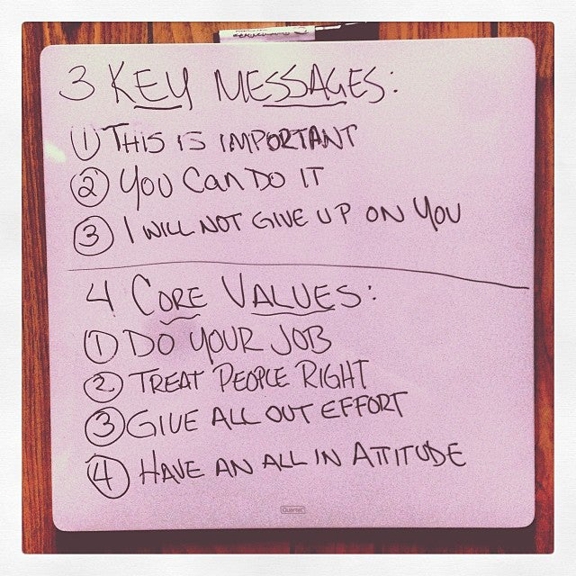 3 KEY MESSAGES:
① THIS IS IMPORTANT
② YOU CAN DO IT
③ I WILL NOT GIVE UP ON YOU
4 CORE VALUES:
① DO YOUR JOB
② TREAT PEOPLE RIGHT
③ GIVE ALL OUT EFFORT
④ HAVE AN ALL IN ATTITUDE
Quartet